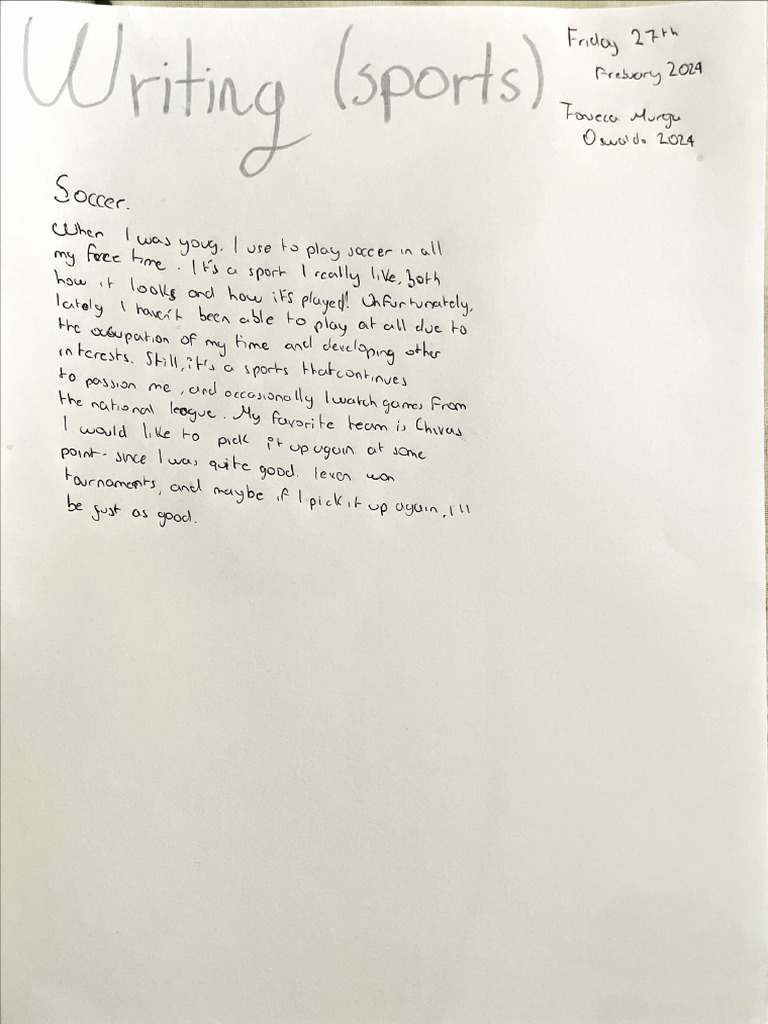 Writing (sports)
Friday 27th
Frebuary 2024
Fonseca Murgu
Oswaldo 2024
Soccer.
When I was youg, I use to play soccer in all
my free time. It's a sport I really like, both
how it looks and how it's played! Unfurtunately,
lately I haven't been able to play at all due to
the occupation of my time and developing other
interests. Still, it's a sports that continues
to passion me, and occasionally I watch games from
the national league. My favorite team is Chivas
I would like to pick it up again at some
point- since I was quite good. I even won
tournaments, and maybe if I pick it up again, I'll
be just as good.